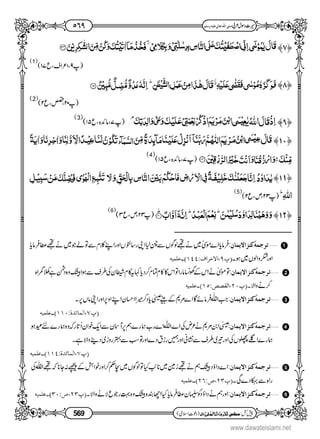 سیرتِ رسولِ عربی صلی اللہ تعالیٰ علیہ وسلم ۵۶۹
﴿۷﴾ قَالَ یٰمُوْسٰۤى اِنِّی اصْطَفَیْتُكَ عَلَى النَّاسِ بِرِسٰلٰتِیْ وَ بِكَلَامِیْ ﳲ فَخُذْ مَاۤ اٰتَیْتُكَ وَ كُنْ مِّنَ الشّٰكِرِیْنَ
(پ۹، اعراف، ع ۱۷) (1)
﴿۸﴾ فَوَكَزَهٗ مُوْسٰى فَقَضٰى عَلَیْهِ ﱪ قَالَ هٰذَا مِنْ عَمَلِ الشَّیْطٰنِؕ-اِنَّهٗ عَدُوٌّ مُّضِلٌّ مُّبِیْنٌ
(پ۲۰، قصص، ع۲) (2)
﴿۹﴾ اِذْ قَالَ اللّٰهُ یٰعِیْسَى ابْنَ مَرْیَمَ اذْكُرْ نِعْمَتِیْ عَلَیْكَ وَ عَلٰى وَالِدَتِكَ (پ۷، مائدہ، ع۱۵) (3)
﴿۱۰﴾ قَالَ عِیْسَى ابْنُ مَرْیَمَ اللّٰهُمَّ رَبَّنَاۤ اَنْزِلْ عَلَیْنَا مَآىٕدَةً مِّنَ السَّمَآءِ تَكُوْنُ لَنَا عِیْدًا لِّاَوَّلِنَا وَ اٰخِرِنَا وَ اٰیَةً
مِّنْكَۚ-وَ ارْزُقْنَا وَ اَنْتَ خَیْرُ الرّٰزِقِیْنَ (پ۷، مائدہ، ع۱۵) (4)
﴿۱۱﴾ یٰدَاوٗدُ اِنَّا جَعَلْنٰكَ خَلِیْفَةً فِی الْاَرْضِ فَاحْكُمْ بَیْنَ النَّاسِ بِالْحَقِّ وَ لَا تَتَّبِـعِ الْهَوٰى فَیُضِلَّكَ عَنْ سَبِیْلِ
اللّٰهِؕ (پ۲۳، ص، ع۲) (5)
﴿۱۲﴾ وَ وَهَبْنَا لِدَاوٗدَ سُلَیْمٰنَؕ-نِعْمَ الْعَبْدُؕ-اِنَّهٗۤ اَوَّابٌ (پ۲۳، ص، ع۳) (6)
1 ترجمۂ کنز الایمان: فرمایا اے موسیٰ میں نے تجھے لوگوں سے چن لیا اپنی رسالتوں اور اپنے کلام سے تو لے جو میں نے تجھے عطا فرمایا
اور شکر والوں میں ہو۔ (پ۹، الاعراف: ۱۴۴)۔ علمیہ
2 ترجمۂ کنز الایمان: تو موسیٰ نے اس کے گھونسا مارا تو اس کا کام تمام کر دیا کہا یہ کام شیطان کی طرف سے ہوا بیشک وہ دشمن ہے کھلا گمراہ
کرنے والا۔ (پ۲۰، القصص: ۱۵)۔ علمیہ
3 ترجمۂ کنز الایمان: جب اللہ فرمائے گا اے مریم کے بیٹے عیسیٰ یاد کر میرا احسان اپنے اوپر اور اپنی ماں پر۔
(پ۷، المائدۃ: ۱۱۰)۔ علمیہ
4 ترجمۂ کنز الایمان: عیسیٰ ابن مریم نے عرض کی اے اللہ اے رب ہمارے ہم پر آسمان سے ایک خوان اتار کہ وہ ہمارے لئے عید ہو
ہمارے اگلے پچھلوں کی اور تیری طرف سے نشانی اور ہمیں رزق دے اور تو سب سے بہتر روزی دینے والا ہے۔
(پ۷، المائدۃ: ۱۱۴)۔ علمیہ
5 ترجمۂ کنز الایمان: اے داؤد بیشک ہم نے تجھے زمین میں نائب کیا تو لوگوں میں سچا حکم کر اور خواہش کے پیچھے نہ جانا کہ تجھے اللہ کی
راہ سے بہکا دے گی۔ (پ۲۳، ص: ۲۶)۔ علمیہ
6 ترجمۂ کنز الایمان: اور ہم نے داؤد کو سلیمان عطا فرمایا کیا اچھا بندہ بیشک وہ بہت رجوع لانے والا۔ (پ۲۳، ص: ۳۰)۔ علمیہ
569
www.dawateislami.net